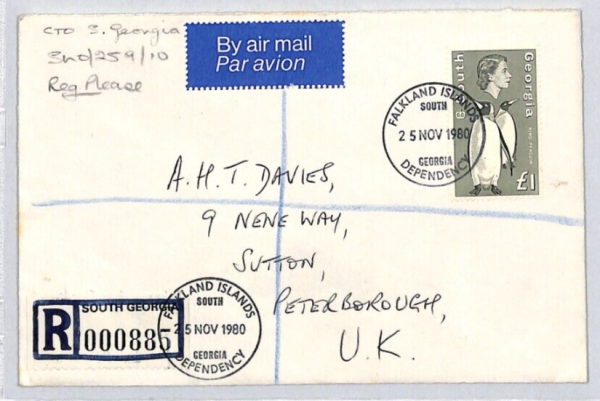 CTO S. Georgia
3nd/259/10
Reg Please
By air mail
Par avion
South Georgia
KING PENGUIN
£1
FALKLAND ISLANDS
SOUTH
25 NOV 1980
GEORGIA
DEPENDENCY
A.H.T. DAVIES,
9 NENE WAY,
SUTTON,
PETERBOROUGH,
U.K.
SOUTH GEORGIA
R 000885
FALKLAND ISLANDS
SOUTH
25 NOV 1980
GEORGIA
DEPENDENCY